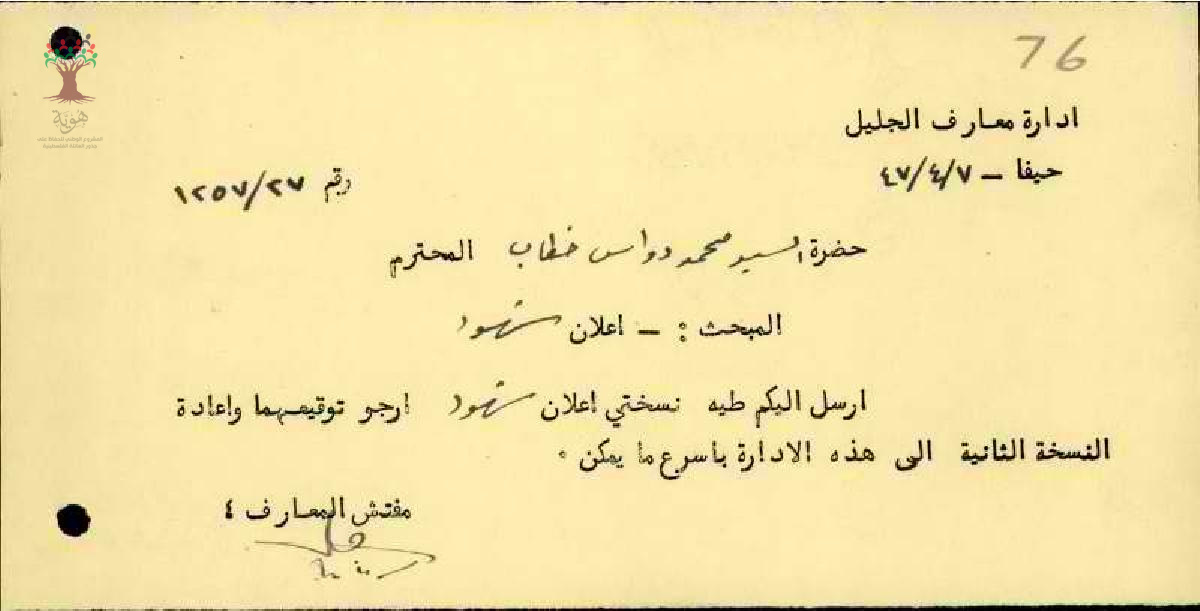 76
ادارة معارف الجليل
حيفا – ٤٧/٤/٧
رقم ١٢٥٧/٢٧
حضرة السيد محمد دواس خطاب المحترم
المبحث : – اعلان شهود
ارسل اليكم طيه نسختي اعلان شهود ارجو توقيعهما واعادة
النسخة الثانية الى هذه الادارة باسرع ما يمكن .
مفتش المعارف ٤
هُوِيَّة